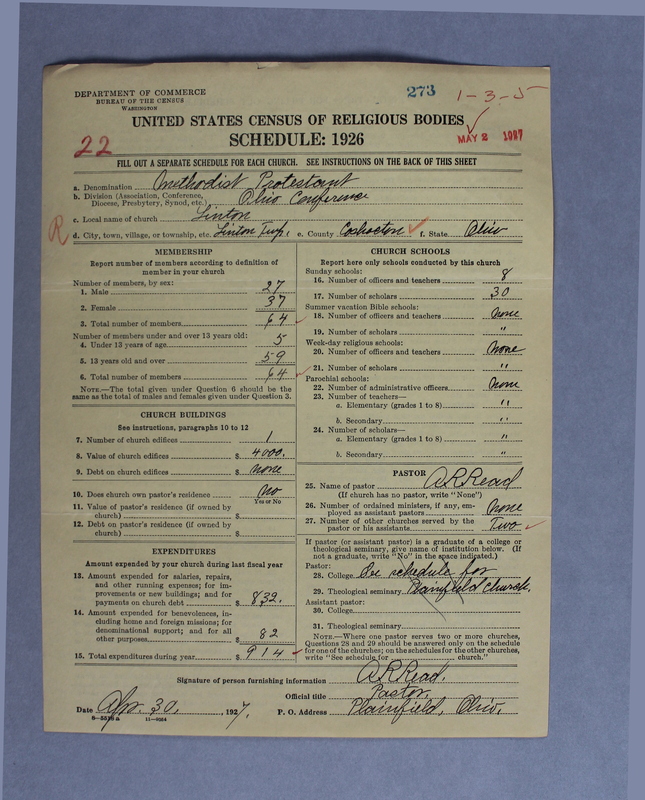 DEPARTMENT OF COMMERCE
BUREAU OF THE CENSUS
WASHINGTON
273
1-3-5
UNITED STATES CENSUS OF RELIGIOUS BODIES
SCHEDULE: 1926
22
MAY 2 1927
FILL OUT A SEPARATE SCHEDULE FOR EACH CHURCH. SEE INSTRUCTIONS ON THE BACK OF THIS SHEET
a. Denomination Methodist Protestant
b. Division (Association, Conference, Diocese, Presbytery, Synod, etc.) Ohio Conference
c. Local name of church Linton
R
d. City, town, village, or township, etc. Linton Twp. e. County Coshocton f. State Ohio
MEMBERSHIP
Report number of members according to definition of
member in your church
Number of members, by sex:
1. Male 27
2. Female 37
3. Total number of members 64
Number of members under and over 13 years old:
4. Under 13 years of age 5
5. 13 years old and over 59
6. Total number of members 64
NOTE.—The total given under Question 6 should be the
same as the total of males and females given under Question 3.
CHURCH BUILDINGS
See instructions, paragraphs 10 to 12
7. Number of church edifices 1
8. Value of church edifices $ 4000.
9. Debt on church edifices $ none
10. Does church own pastor's residence No
Yes or No
11. Value of pastor's residence (if owned by
church) $
12. Debt on pastor's residence (if owned by
church) $
EXPENDITURES
Amount expended by your church during last fiscal year
13. Amount expended for salaries, repairs,
and other running expenses; for im-
provements or new buildings; and for
payments on church debt $ 832.
14. Amount expended for benevolences, in-
cluding home and foreign missions; for
denominational support; and for all
other purposes $ 82
15. Total expenditures during year $ 914
CHURCH SCHOOLS
Report here only schools conducted by this church
Sunday schools:
16. Number of officers and teachers 8
17. Number of scholars 30
Summer vacation Bible schools:
18. Number of officers and teachers none
19. Number of scholars "
Week-day religious schools:
20. Number of officers and teachers none
21. Number of scholars "
Parochial schools:
22. Number of administrative officers none
23. Number of teachers—
a. Elementary (grades 1 to 8) "
b. Secondary "
24. Number of scholars—
a. Elementary (grades 1 to 8) "
b. Secondary "
PASTOR
25. Name of pastor A R Read
(If church has no pastor, write "None")
26. Number of ordained ministers, if any, em-
ployed as assistant pastors none
27. Number of other churches served by the
pastor or his assistants Two
If pastor (or assistant pastor) is a graduate of a college or
theological seminary, give name of institution below. (If
not a graduate, write "No" in the space indicated.)
Pastor:
28. College See schedule for
29. Theological seminary Plainfield Church.
Assistant pastor:
30. College
31. Theological seminary
NOTE.—Where one pastor serves two or more churches,
Questions 28 and 29 should be answered only on the schedule
for one of the churches; on the schedules for the other churches,
write "See schedule for church."
Signature of person furnishing information A R Read.
Official title Pastor.
Date Apr. 30, 1927. P. O. Address Plainfield, Ohio.
8-5538a 11-9064